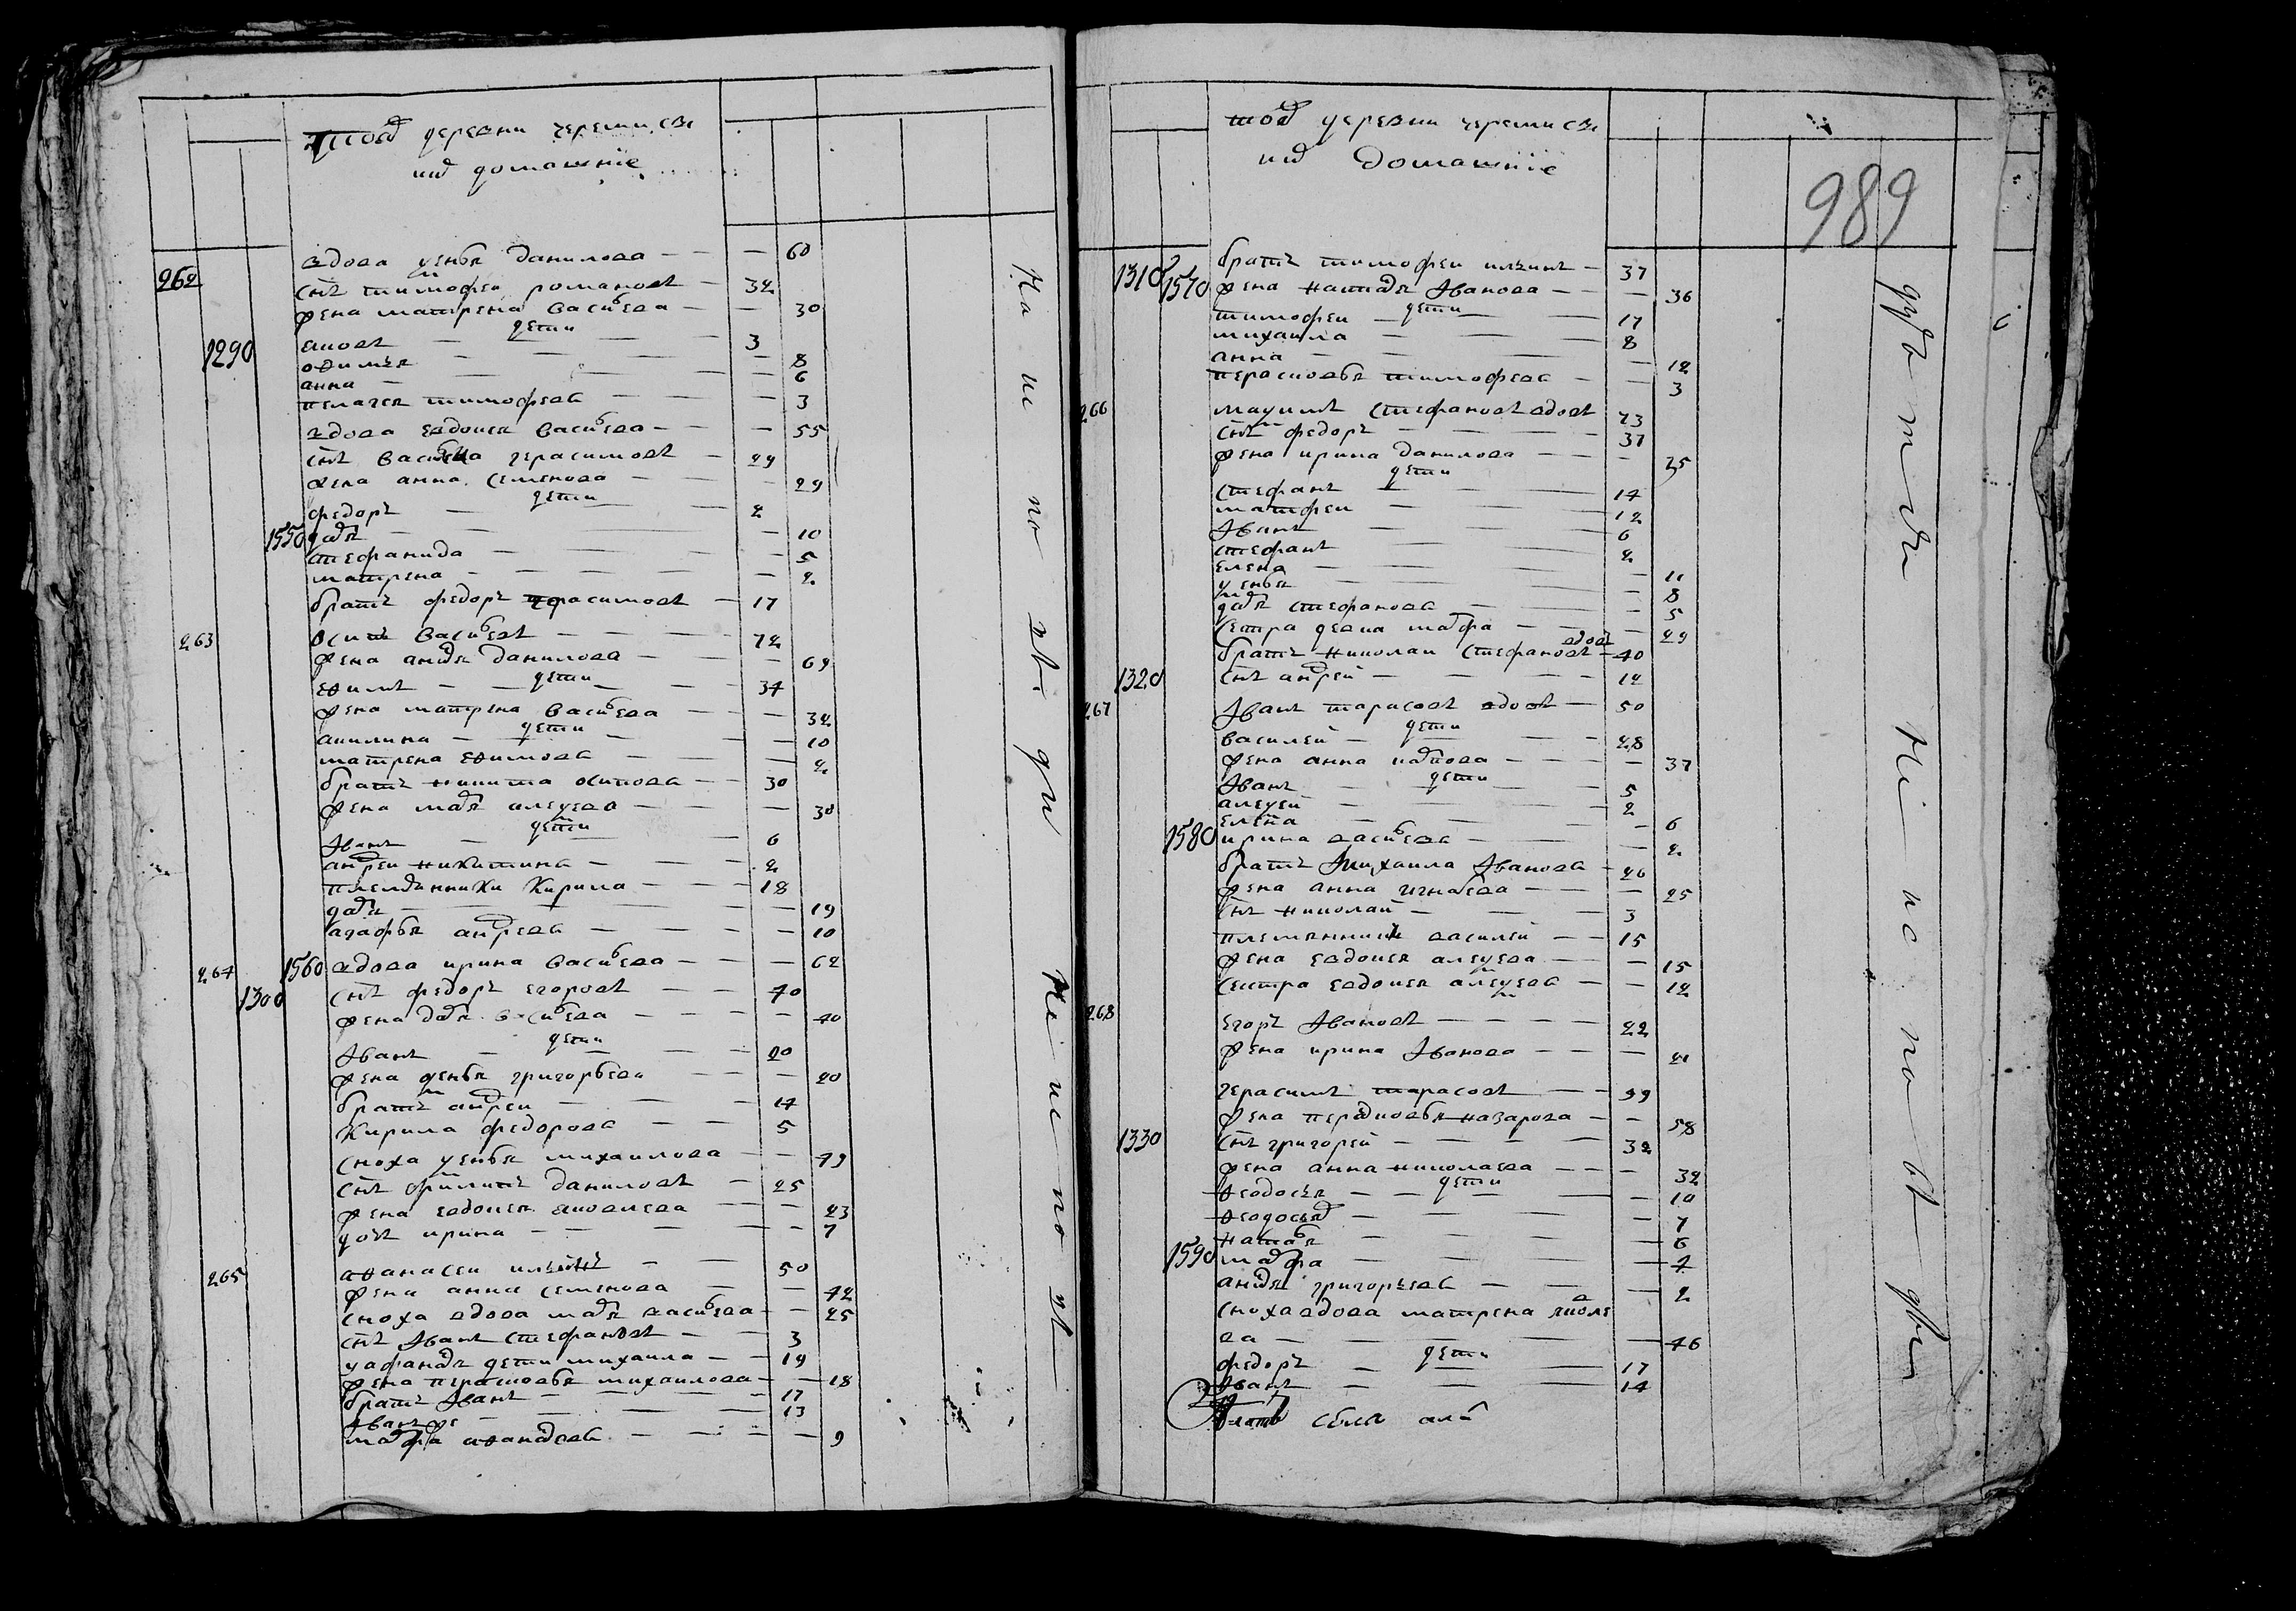 той деревни черемисы
их домашние
вдова ксенья данилова — 60
262 снъ тимофеи романовъ — 32
жена матрена васильева — 30
дети
1290 яковъ — 3
офимья — 8
анна — 6
пелагея тимофеевы — 3
вдова евдокея васильева — 55
снъ василеи герасимовъ — 29
жена анна семенова — 29
дети
федоръ — 2
1550 дарья — 10
стефанида — 5
матрена — 2
братъ федоръ герасимовъ — 17
263 осипъ васильевъ — 72
жена анисья данилова — 69
дети
ефимъ — 34
жена матрена васильева — 32
дети
акилина — 10
матрена ефимовы — 2
братъ никита осиповъ — 30
жена марья алексеева — 30
дети
Иванъ — 6
андреи никитины — 2
племянники Кирила — 18
дарья — 19
агафья андреевы — 10
264 1560 вдова ирина васильева — 62
1300 снъ федоръ егоровъ — 40
жена дарья васильева — 40
дети
Иванъ — 20
жена ксенья григорьева — 20
братъ андреи — 14
Кирила федоровы — 5
сноха ксенья михаилова — 49
снъ филипъ даниловъ — 25
жена евдокея яковлева — 23
дочь ирина — 7
265 афанасеи ильинъ — 50
жена анна семенова — 42
сноха вдова марья васильева — 25
снъ Иванъ стефановъ — 3
у афанасья дети михаила — 19
жена парасковья михаилова — 18
братъ Иванъ — 17
Иванъ же — 13
марфа афанасьевы — 9
той деревни черемисы
их домашние
989
братъ тимофеи ильинъ — 37
1310 1570 жена настасья Иванова — 36
дети
тимофеи — 17
михаила — 8
анна — 12
перасковья тимофеевы — 3
266 максимъ стефановъ вдовъ 73
снъ федоръ — 37
жена ирина данилова — 35
дети
стефанъ — 14
матфеи — 12
Иванъ — 6
стефанъ — 2
елена — 11
ксенья — 8
дарья стефановы — 5
сестра девка марфа — 29
братъ николаи стефановъ вдовъ — 40
1320 снъ андреи — 12
267 Иванъ тарасовъ вдовъ — 50
дети
василеи — 28
жена анна карпова — 37
дети
Иванъ — 5
алексеи — 2
елена — 6
1580 ирина васильевы — 2
братъ Михаила Ивановъ — 26
жена анна игнатьева — 25
снъ николаи — 3
племянникъ василеи — 15
жена евдокея алексеева — 15
сестра евдокея алексеева — 12
268 егоръ Ивановъ — 22
жена ирина Иванова — 21
герасимъ тарасовъ — 59
жена перасковья назарова — 58
1330 снъ григореи — 32
жена анна николаева — 32
дети
феодосья — 10
феодосья ж — 7
наталья — 6
1590 марфа — 4
анисья григорьевы — 2
сноха вдова матрена яковле
ва — 46
дети
федоръ — 17
Иванъ — 14
села